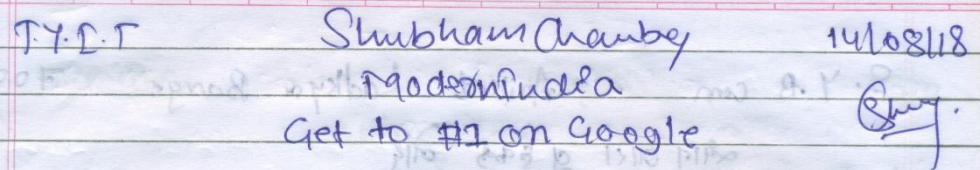 T.Y.I.T Shubham Chaubey 14/08/18
Modern india
Get to #1 on Google